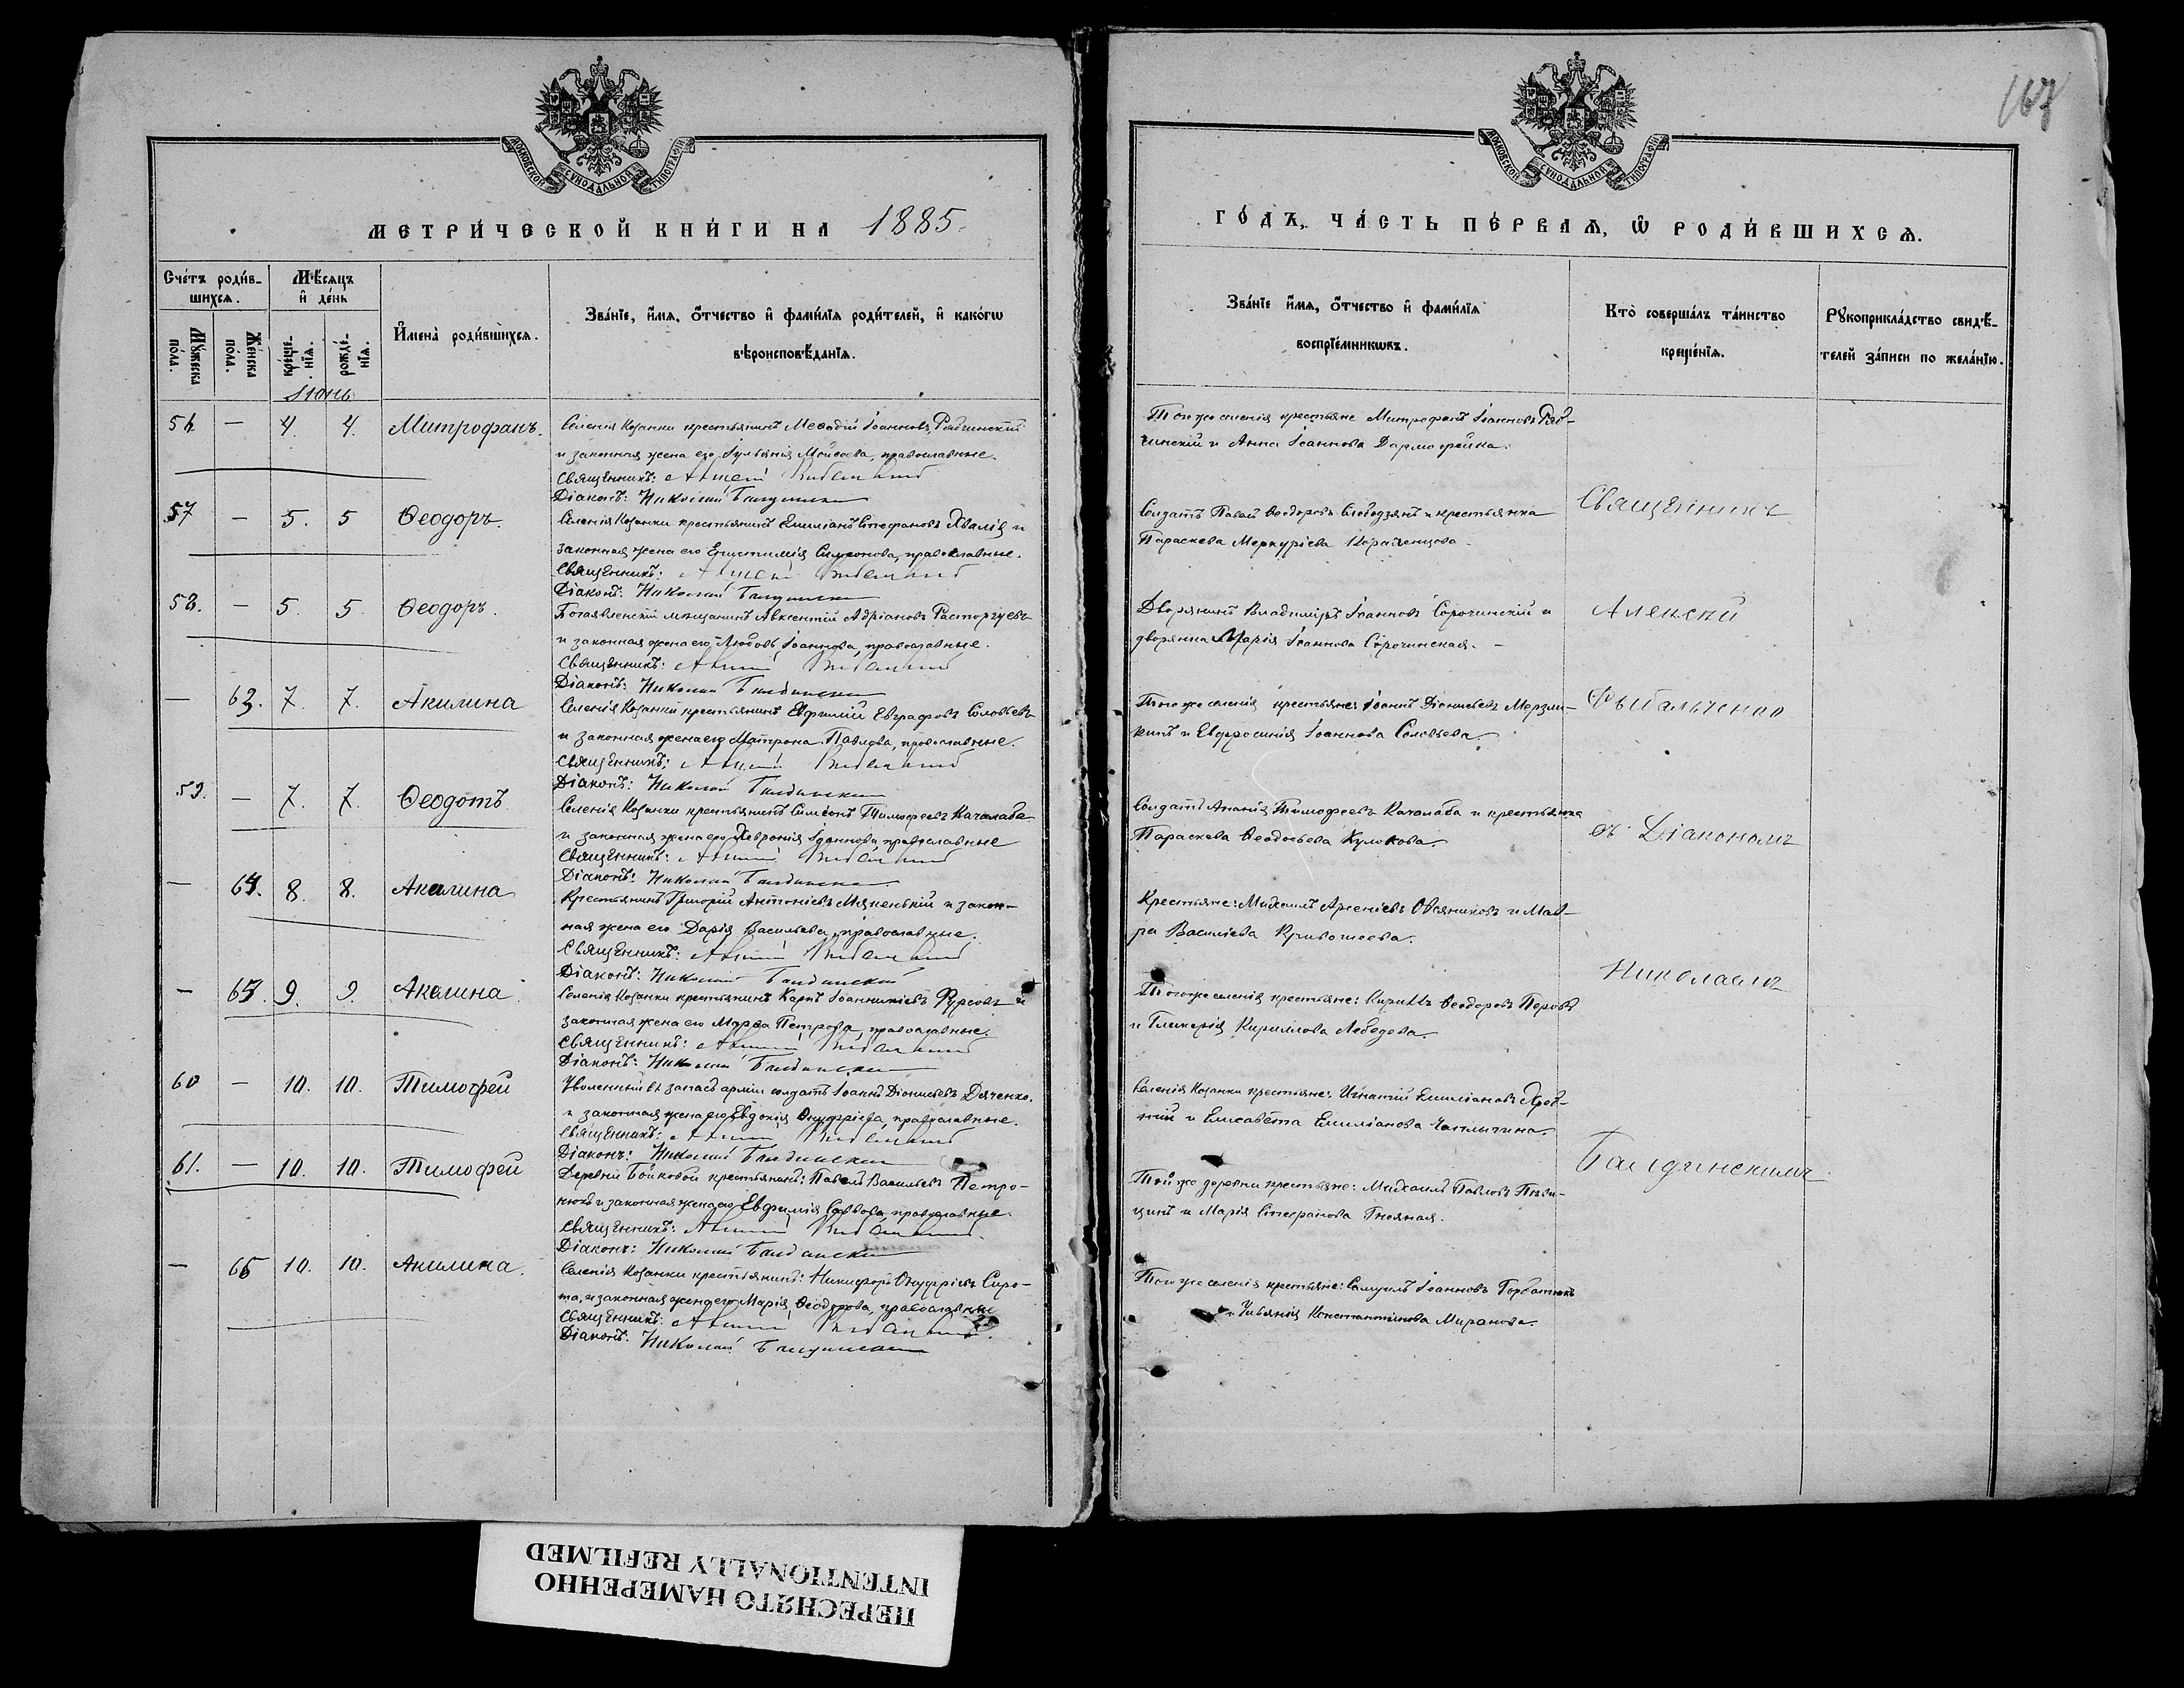 МОСКОВСКОЙ СѴНОДАЛЬНОЙ ТИПОГРАФІИ
МЕТРИ́ЧЕСКОЙ КНИ́ГИ НА 1885.
Сче́тъ роди́в-
шихсѧ.
Мѣ́сѧцъ
и҆ де́нь
Мꙋ́жеска
пола.
Же́нска
пола.
креще́-
нїѧ.
рожде́-
нїѧ.
И҆мена̀ роди́вшихсѧ.
Зва́нїе, и҆́мѧ, ѻ҆́тчество и҆ фами́лїѧ роди́телей, и҆ како́гѡ
вѣроисповѣ́данїѧ.
Іюнь
56. — 4. 4. Митрофанъ.
Селенія Козанки крестьянинъ Меѳодій Іоанновъ Рябчинскій
и законная жена его Іульянія Моѵсеева, православные.
Священникъ: Алексій
Діаконъ: Николай Балдински
57 — 5. 5 Ѳеодоръ.
Селенія Козанки крестьянинъ Емиліанъ Стефановъ Хвалій и
законная жена его Епистимія Симеонова, православные.
Священникъ: Алексій
Діаконъ: Николай Балдински
58. — 5. 5. Ѳеодоръ.
Богоявленскій мѣщанинъ Авксентій Адріановъ Расторгуевъ
и законная жена его Любовь Іоаннова, православные.
Священникъ: Алексій
Діаконъ: Николай Балдински
— 63. 7. 7. Акилина
Селенія Козанки крестьянинъ Евфимій Евграфовъ Соловьевъ
и законная жена его Матрона Павлова, православные.
Священникъ: Алексій
Діаконъ: Николай Балдински
59. — 7. 7. Ѳеодотъ
Селенія Козанки крестьянинъ Симеонъ Тимофеевъ Качалаба
и законная жена его Хевронія Іоаннова православные
Священникъ: Алексій
Діаконъ: Николай Балдински
— 64. 8. 8. Акилина
Крестьянинъ Григорій Антоніевъ Мякенькій и закон-
ная жена его Дарія Васильева, православные.
Священникъ: Алексій
Діаконъ: Николай Балдинский
— 65. 9. 9. Акилина.
Селенія Козанки крестьянинъ Карпъ Іоанникіевъ Фурсовъ и
законная жена его Марѳа Петрова, православные.
Священникъ: Алексій
Діаконъ: Николай Балдински
60 — 10. 10. Тимофей
Уволенный въ запасъ арміи солдатъ Іоаннъ Діонисіевъ Дяченко.
и законная жена его Евдокія Онуфріева, православные.
Священникъ: Алексій
Діаконъ: Николай Балдински
61. — 10. 10. Тимофей
Деревни Бойковой крестьянинъ: Павелъ Васильевъ Петро-
нюкъ и законная жена его Евфимія Саввова, православные.
Священникъ: Алексій
Діаконъ: Николай Балдински
— 66 10. 10. Акилина.
Селенія Козанки крестьянинъ: Никифоръ Онуфріевъ Сиро-
та, и законная жена его Марія Ѳеодорова, православные
Священникъ: Алексій
Діаконъ: Николай Балдински
167
МОСКОВСКОЙ СѴНОДАЛЬНОЙ ТИПОГРАФІИ
ГО́ДЪ, ЧА́СТЬ ПЕ́РВАѦ, Ѡ҆ РОДИ́ВШИХСѦ.
Зва́нїе и҆́мѧ, ѻ҆́тчество и҆ фами́лїѧ
воспрїе́мникѡвъ.
Кто̀ соверша́лъ та́инство
креще́нїѧ.
Рꙋкоприкла́дство свидѣ́-
телей за́писи по жела́нїю.
Того же селенія крестьяне Митрофанъ Іоанновъ Ряб-
чинскій и Анна Іоаннова Дармофейка.
Солдатъ Павелъ Ѳеодоровъ Слободзянъ и крестьянка
Параскева Меркуріева
Дворянинъ Владиміръ Іоанновъ Сорочинскій и
дворянка Марія Іоаннова Сорочинская. —
Того же селенія крестьяне: Іоаннъ Діонисіевъ Мерзли-
кинъ и Евфросинія Іоаннова Соловьева.
Солдатъ Ананій Тимофеевъ Качалаба и крестьянка
Параскева Ѳеодосьева Кулокова.
Крестьяне: Михаилъ Арсеніевъ Овсяниковъ и Мав-
ра Василіева Кривошеева.
Того же селенія крестьяне: Кириллъ Ѳеодоровъ Перовъ
и Гликерія Кириллова Лебедева.
Селенія Козанки крестьяне: Игнатій Емиліановъ
и Елисавета Емиліанова Чаплыгина.
Той же деревни крестьяне: Михаилъ Павловъ Пѣви-
цинъ и Марія Стефанова Гнояная.
Того же селенія крестьяне: Самуилъ Іоанновъ Горбатюкъ
и Ульянія Константинова Миранова.
Священникъ
Алексій
Рыбальченко
съ Діакономъ
Николаемъ
Балдинскимъ
ПЕРЕСНЯТО НАМЕРЕННО
INTENTIONALLY REFILMED